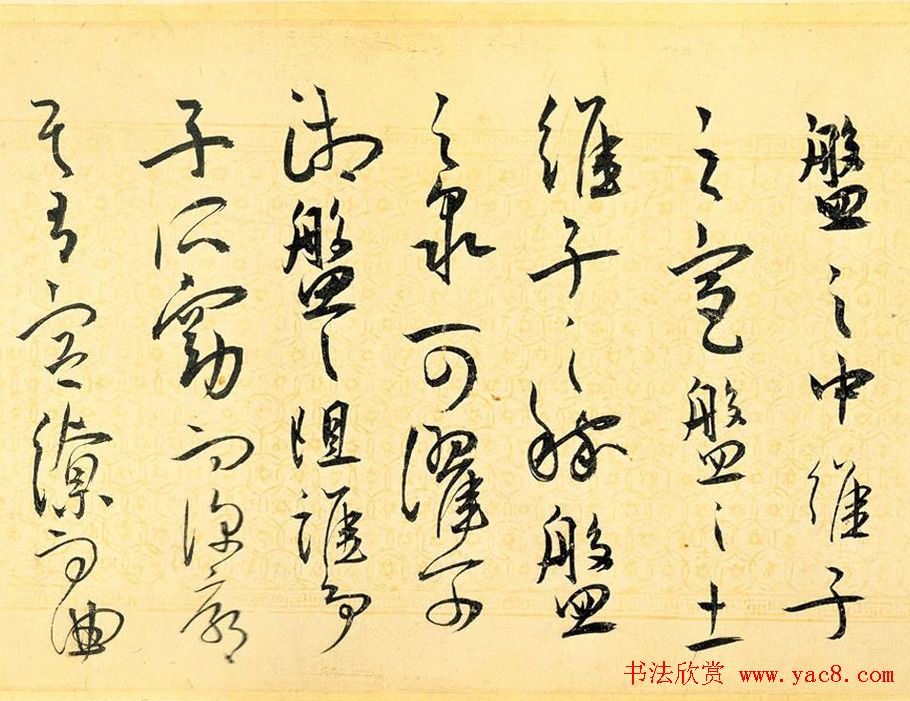 盤之中維子
之宮盤之土
維子之稼盤
之泉可濯可
湘盤之阻誰爭
子所窈而深廓
其有容繚而曲
书法欣赏 www.yac8.com